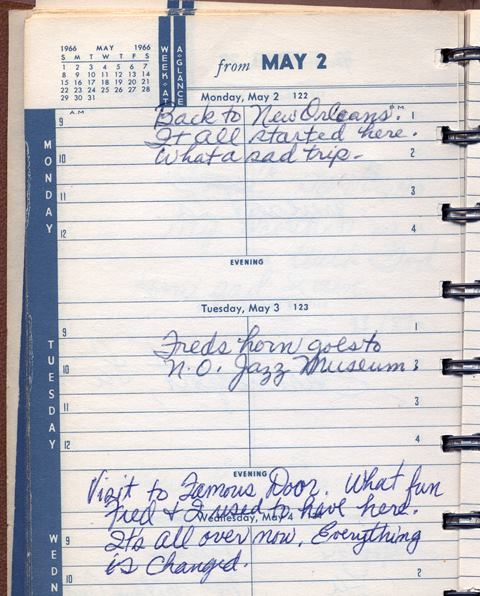 1966 MAY 1966
S M T W T F S
1 2 3 4 5 6 7
8 9 10 11 12 13 14
15 16 17 18 19 20 21
22 23 24 25 26 27 28
29 30 31
WEEK-AT
A-GLANCE
from MAY 2
Monday, May 2 122
A.M. P.M.
MONDAY
9 Back to New Orleans. 1
It all started here.
10 What a sad trip. 2
11 3
12 4
EVENING
Tuesday, May 3 123
TUESDAY
9 1
Freds horn goes to
10 N.O. Jazz Museum 3
11 3
12 4
EVENING
Visit to Famous Door. What fun
Fred & I used to have here.
Wednesday, May 4
WEDN
9 Its all over now. Everything
is changed.
10 2